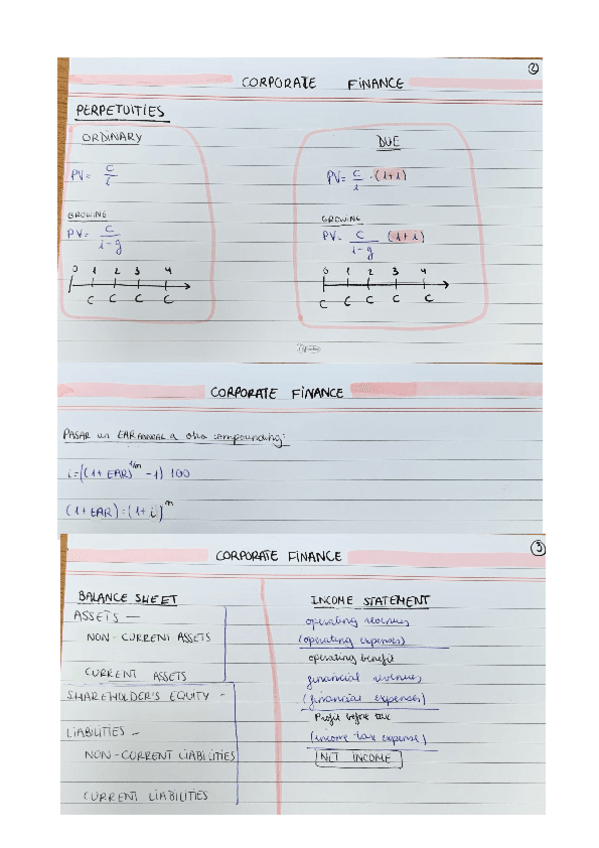 2
CORPORATE FINANCE
PERPETUITIES
ORDINARY
PV= C/i
GROWING
PV= C/i-g
0 1 2 3 4
C C C C
DUE
PV= C/i · (1+i)
GROWING
PV= C/i-g (1+i)
0 1 2 3 4
C C C C C
CORPORATE FINANCE
PASAR un EAR ANUAL a otro compounding:
i=((1+EAR)^1/m -1) 100
(1+EAR)=(1+i)^m
3
CORPORATE FINANCE
BALANCE SHEET
ASSETS —
NON-CURRENT ASSETS
CURRENT ASSETS
SHAREHOLDER'S EQUITY -
LIABILITIES -
NON-CURRENT LIABILITIES
CURRENT LIABILITIES
INCOME STATEMENT
operating revenues
(operating expenses)
operating benefit
financial revenues
(financial expenses)
Profit before tax
(income tax expense)
NET INCOME